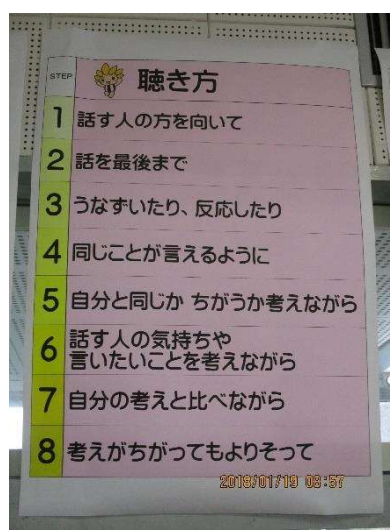 STEP 聴き方
1 話す人の方を向いて
2 話を最後まで
3 うなずいたり、反応したり
4 同じことが言えるように
5 自分と同じか ちがうか考えながら
6 話す人の気持ちや
言いたいことを考えながら
7 自分の考えと比べながら
8 考えがちがってもよりそって
2018/01/19 08:57